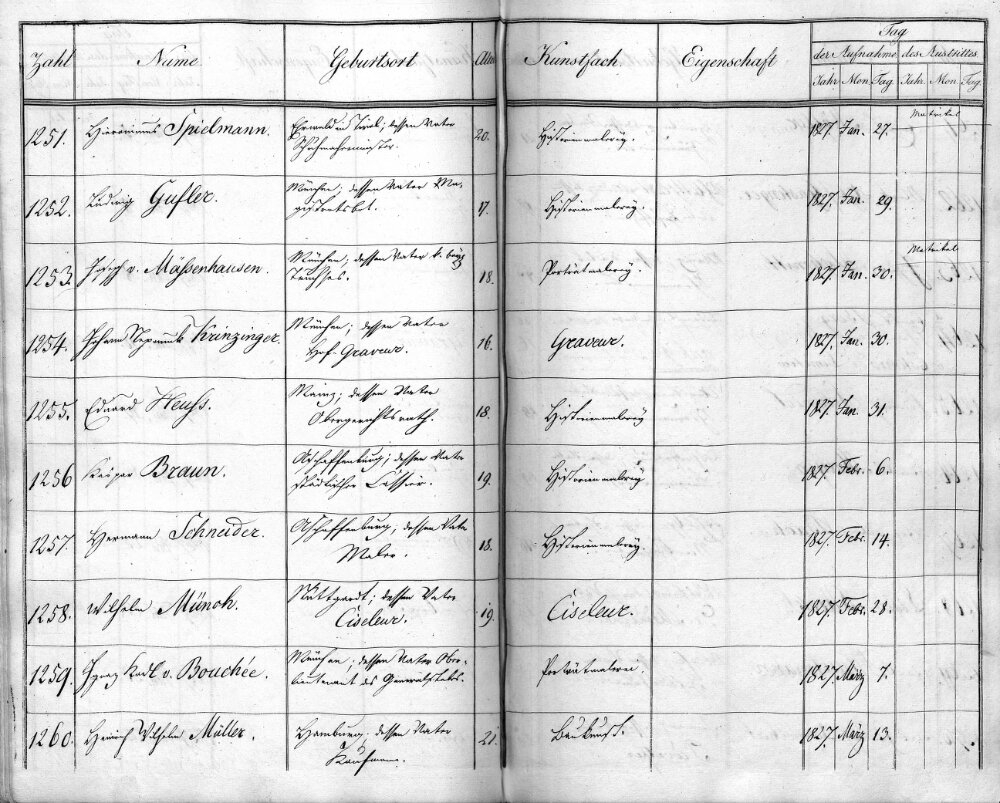 Zahl Name Geburtsort Alter Kunstfach Eigenschaft Tag
der Aufnahme des Austrittes
Jahr Mon Tag Jahr Mon Tag
1251. Hieronimus Spielmann. Ehrwald in Tirol; dessen Vater 20. Historienmalerey. 1827. Jan. 27. Matrikel
Schuhmachermeister.
1252. Ludwig Gufler. München; dessen Vater Ma- 17. Historienmalerey. 1827. Jan. 29.
gistratsbot.
1253. Joseph v. Mässenhausen. München, dessen Vater k. 18. Porträtmalerey. 1827. Jan. 30. Matrikel
Truchsess.
1254. Johann Nepomuk Krinzinger. München; dessen Vater 16. Graveur. 1827. Jan. 30.
Hof-Graveur.
1255. Eduard Heuss. Mainz; dessen Vater 18. Historienmalerey 1827. Jan. 31.
Obergerichtsrath.
1256 Kaspar Braun. Aschaffenburg; dessen Vater 19. Historienmalerey 1827. Febr. 6.
städtischer Cassier.
1257. Hermann Schneider. Aschaffenburg; dessen Vater 18. Historienmalerey 1827. Febr. 14.
Maler.
1258. Wilhelm Münch. Stuttgardt; dessen Vater 19. Ciseleur. 1827. Febr. 28.
Ciseleur.
1259. Ignaz Karl v. Bouchée. München; dessen Vater Ober- Porträtmalerei 1827. März 7.
lieutenant des Generalstabs.
1260. Heinrich Wilhelm Müller. Hamburg; dessen Vater 21. Baukunst. 1827. März 13.
Kaufmann.